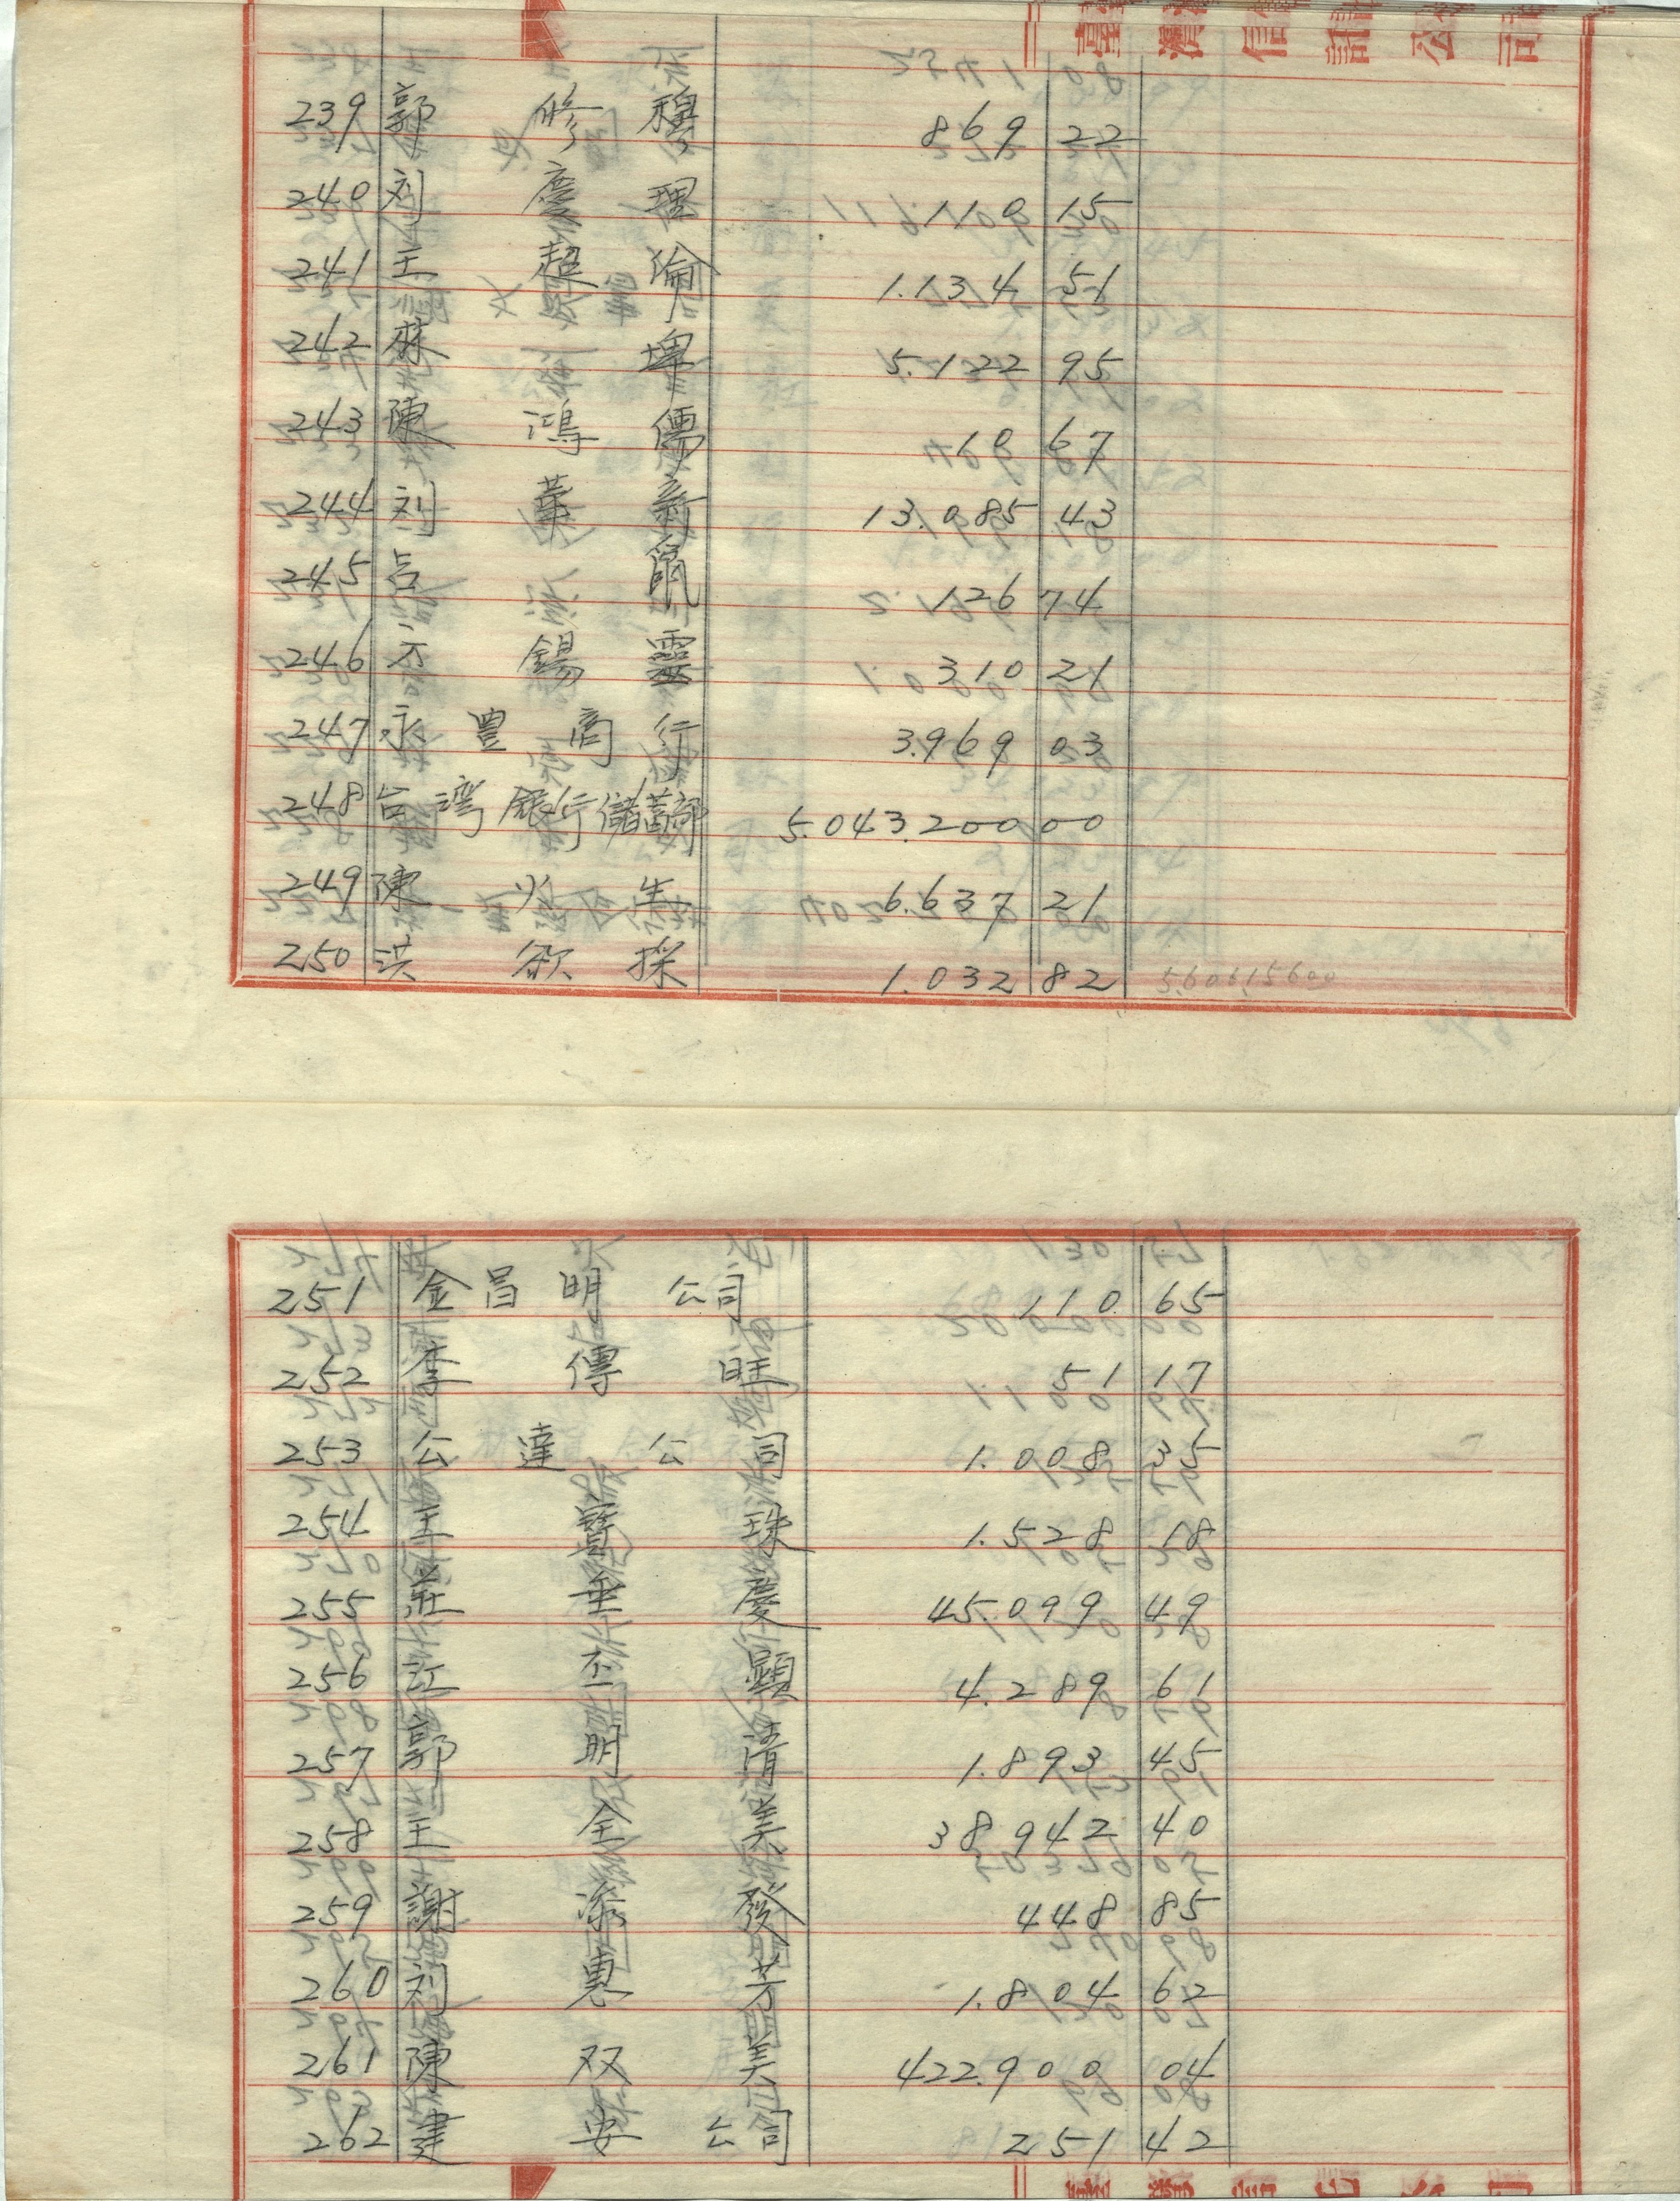 臺灣信託公司
239 郭修穆 869 22
240 刘慶理 110 15
241 王超倫 1.134 51
242 麻 5.122 95
243 陳鴻儒 10 67
244 刘葉新 13.085 43
245 占 126 74
246 示錫靈 310 21
247 永豊商行 3.969 03
248 台湾銀行儲蓄部 5.043.200 00
249 陳火生 6.637 21
250 洪欲採 1.032 82 5,606,156.00
251 金昌明公司 110 65
252 李傳旺 51 17
253 公達公司 1.008 35
254 王寶珠 1.528 18
255 莊垂慶 45.099 49
256 江丕顕 4.289 61
257 郭明清 1.893 45
258 王全美 38 942 40
259 謝添發 448 85
260 刘惠芳 1.804 62
261 陳双美 422.900 04
262 建安公司 251 42